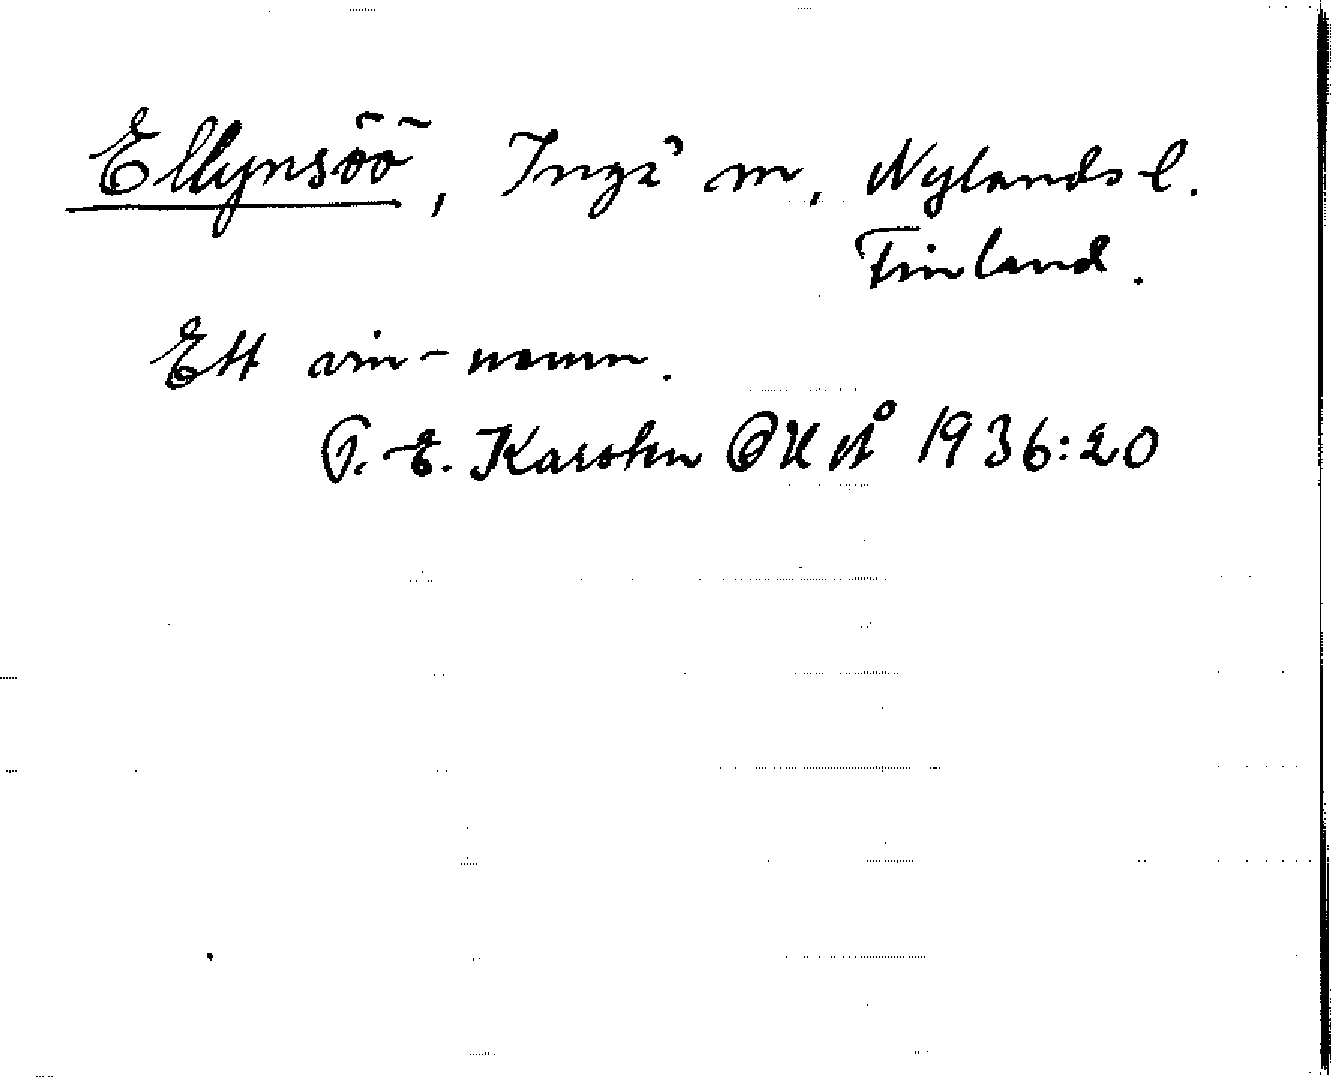 Ellynsöö, Ingå sn, Nylands l.
Finland.
Ett vin-namn.
T. E. Karsten OUÅ 1936:20